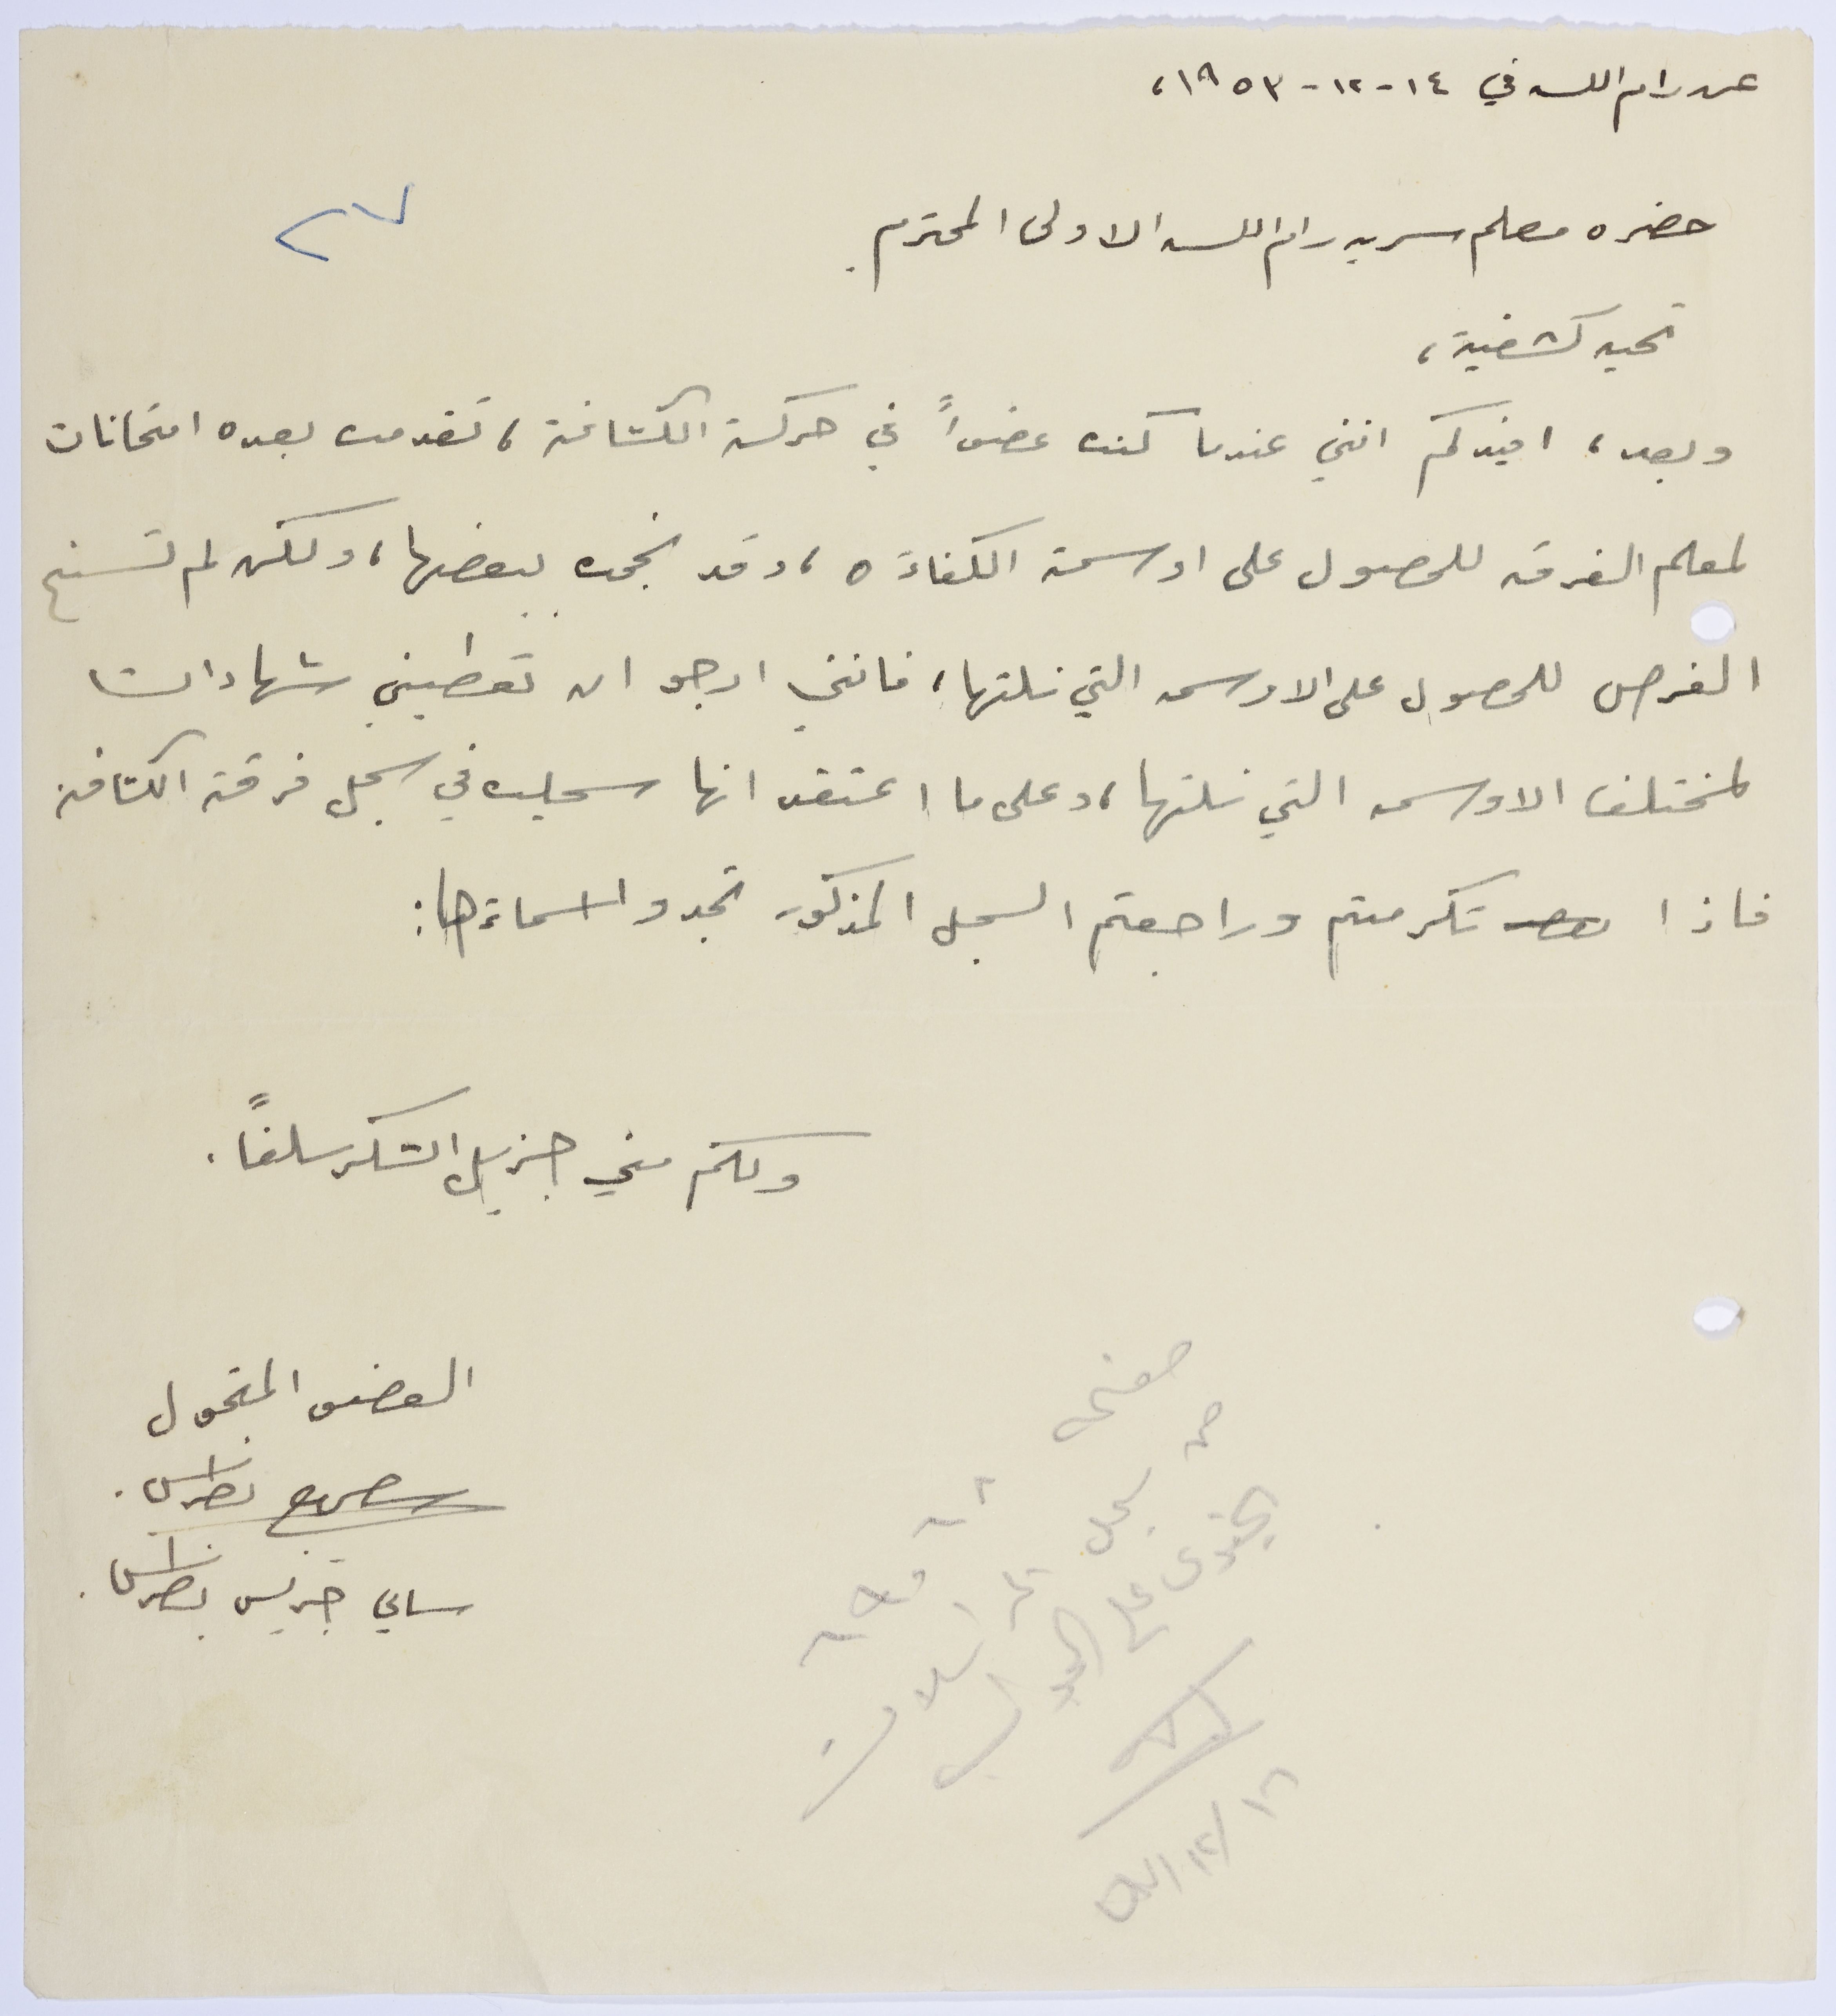 عن رام الله في ١٤-١٢-١٩٥٣،
حضره معلم سريه رام الله الاولى المحترم.
٢٧
تحيه كشفية،
وبعد، افيدكم انني عندما كنت عضواً في حركة الكشافة، تقدمت بعده امتحانات
لمعلم الفرقه للحصول على اوسمة الكفاءه، وقد نجحت ببعضها، ولكن لم تسنح
الفرص للحصول على الاوسمه التي نلتها، فانني ارجو ان تعطيني شهادات
لمختلف الاوسمه التي نلتها، وعلى ما اعتقد انها سجلت في سجل فرقة الكشافة
فاذا تكرمتم وراجعتم السجل المذكور تجدوا اسماءها:
ولكم مني جزيل الشكر سلفاً.
العضو المتحول
بطرس.
سامي جريس بطرس.
صفحة
من
سجل
يحتوي على
١٦/١٢/٥٣